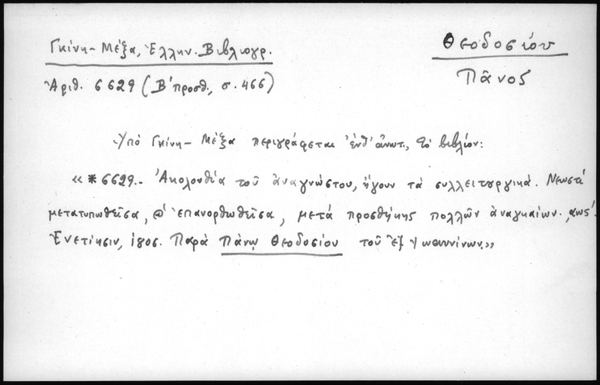 Γκίνη-Μέξα, Ἑλλην. Βιβλιογρ.
Θεοδοσίου
Ἀριθ. 6629 (Β' προσθ., σ. 466)
Πᾶνος
Ὑπό Γκίνη-Μέξα περιγράφεται ἐνθ' ἀνωτ., τό βιβλίον:
«*6629.- Ἀκολουθία τοῦ ἀναγνώστου, ἤγουν τά συλλειτουργικά. Νεωστί
μετατυπωθεῖσα, ἐπανορθωθεῖσα, μετά προσθήκης πολλῶν ἀναγκαίων.
Ἐνετίησιν, Παρά Πάνῳ Θεοδοσίου τοῦ ἐξ Ἰωαννίνων.»